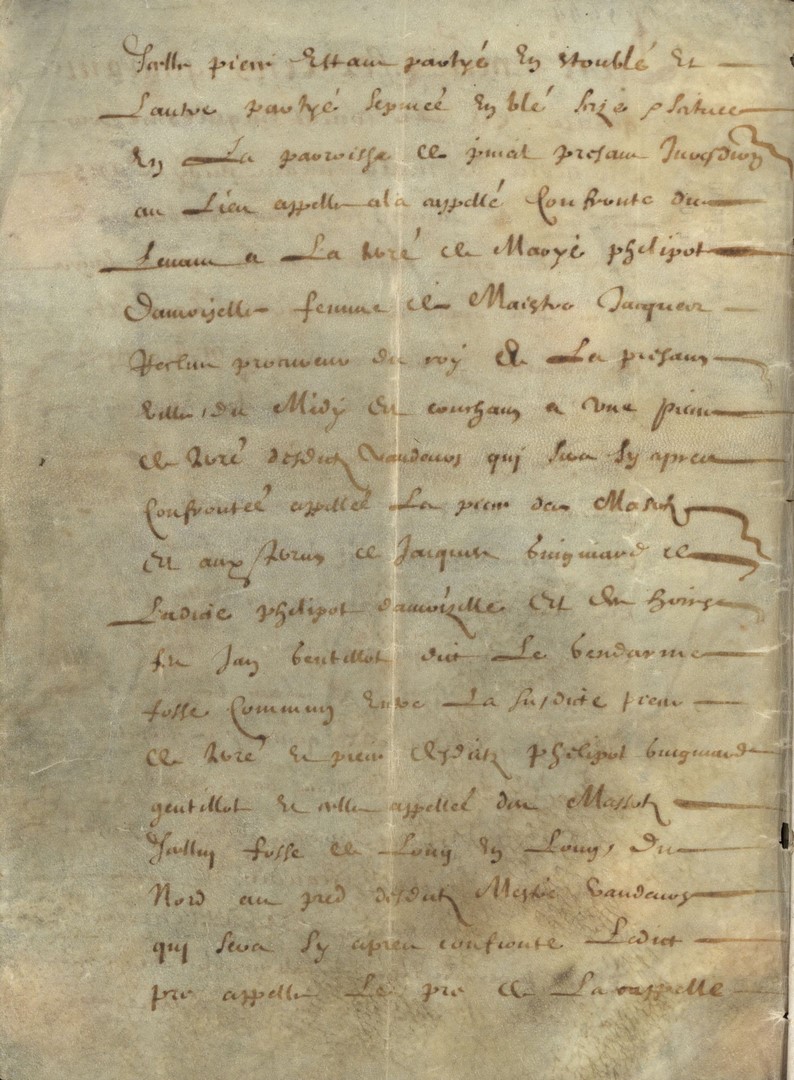 Icelle piece estant partyé en stoublé et
Lautre partyé semeé en blé seize scituee
en La parroisse de pinat presant Jurisdion
au Lieu appelle a la cappellé Confronte du
Levant a La terré de Maryé phelipot
Damoiselle femme de Maistre Jacques
procureur du roy de La presant
ville, du Midy et couchant a une piece
de terré desdictz Vaudevos qui sera sy apres
Confronteé appelleé La piece des Massotz
Et aux terres de Jacques guignard de
Ladicte phelipot damoizelle Et des hoirs
feu Jan gentillot dict Le gendarme
fosse Commun Entre La susdicte piece
de terré et piece desdictz phelipot guignard
gentillot et celle appelleé des Massotz
Icelluy fosse de Long en Long, Du
Nord au pred desdictz Vaudevos
qui sera sy apres confronte Ledict
pre appelle Le pre de La cappelle